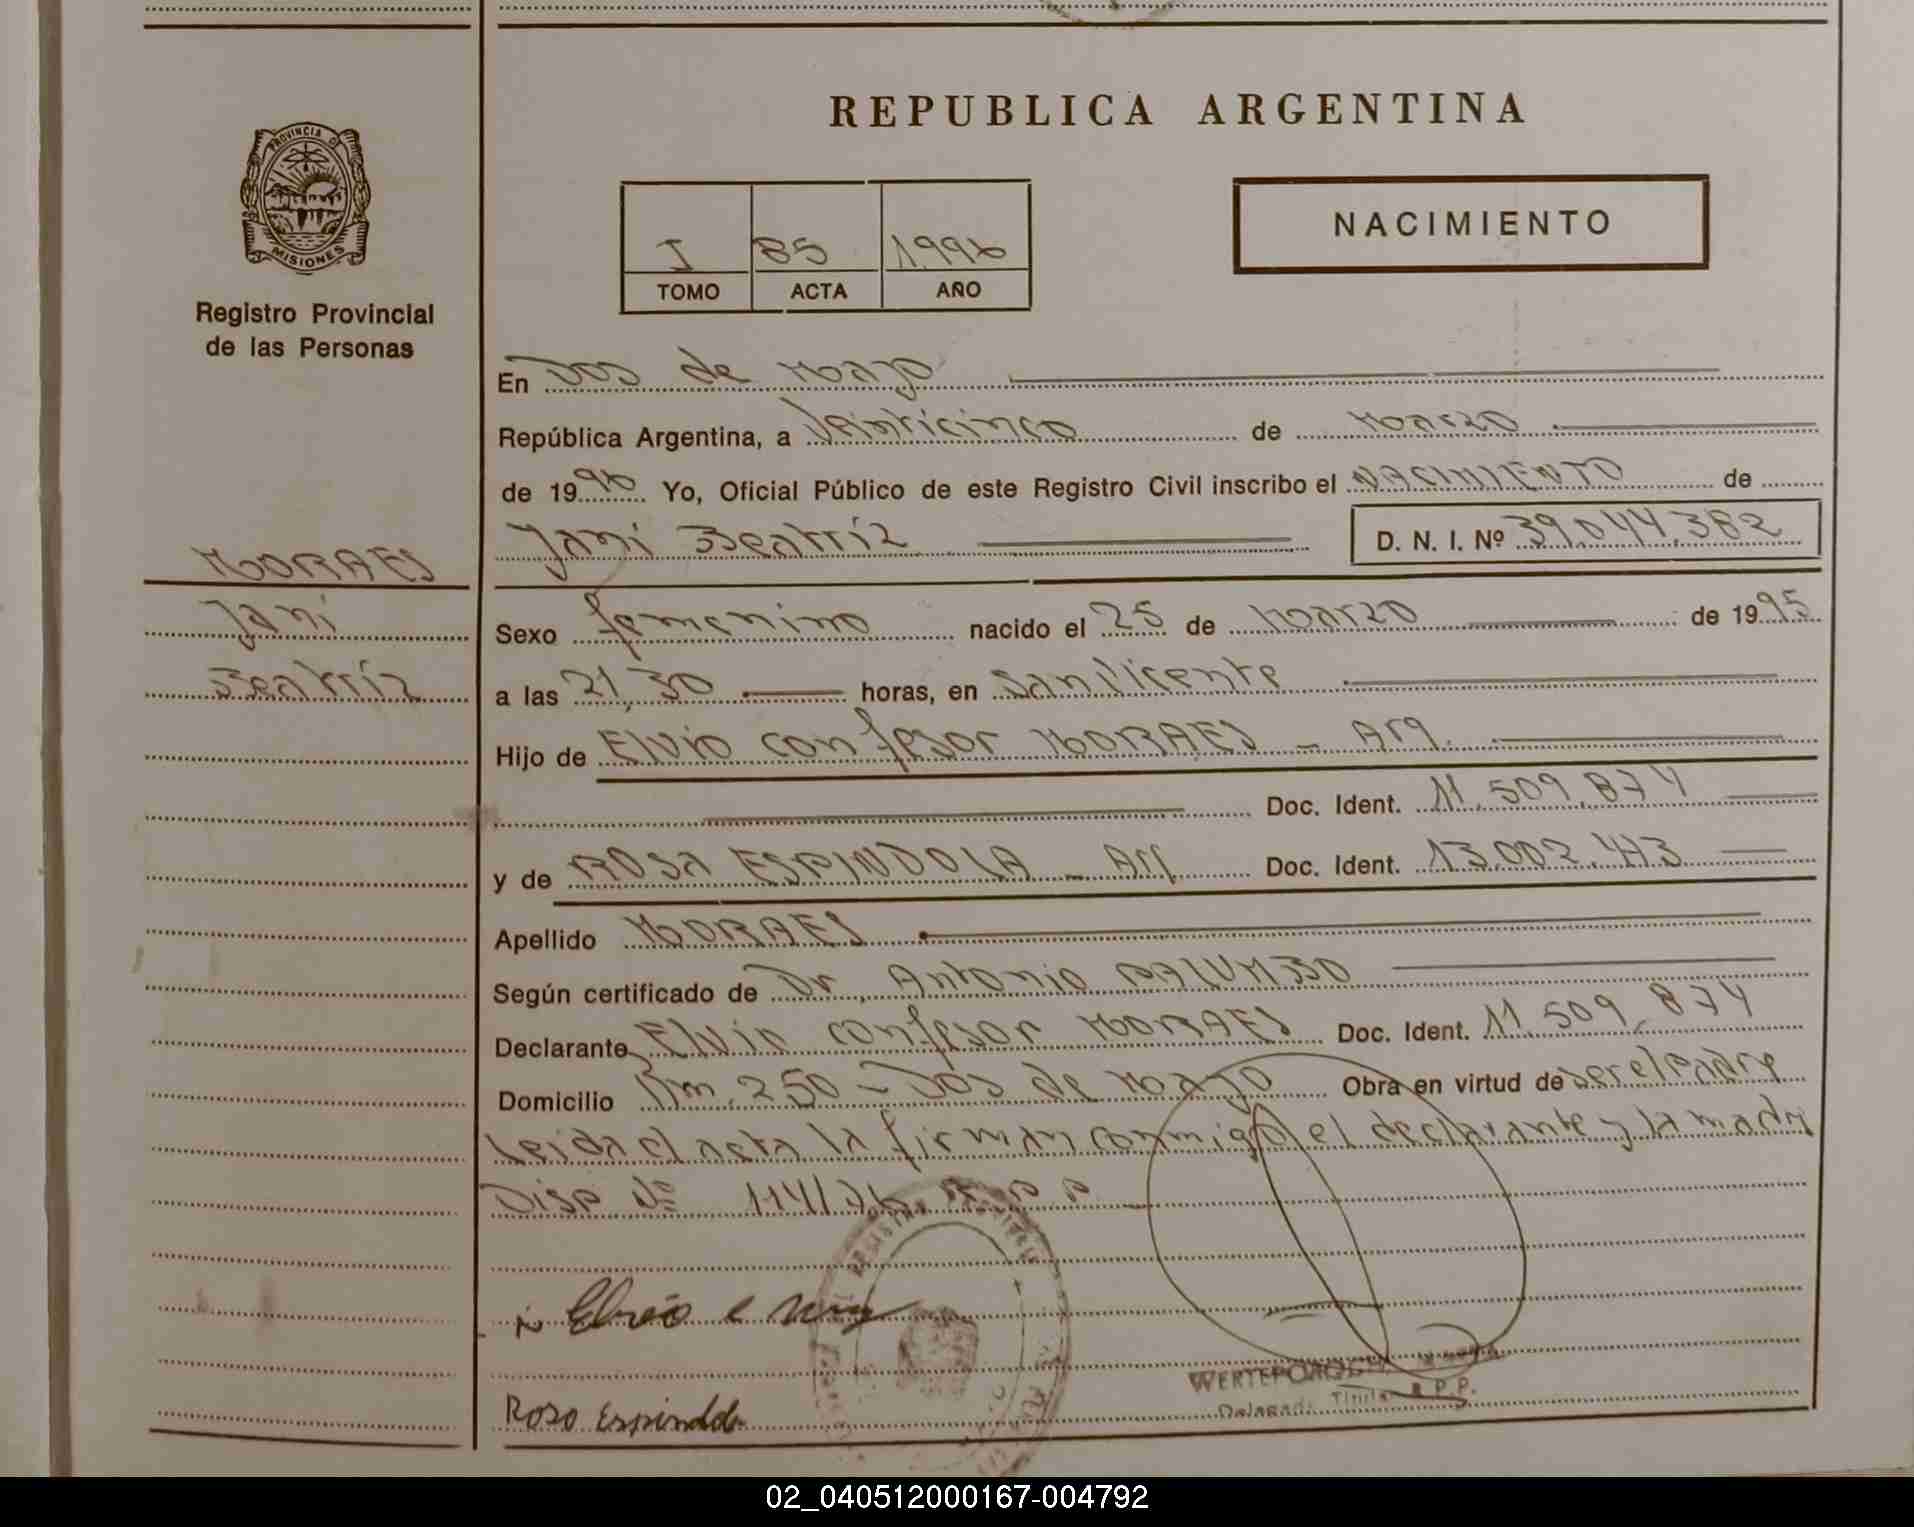 PROVINCIA DE
MISIONES
Registro Provincial
de las Personas
MORAES
Jani
Beatríz
REPUBLICA ARGENTINA
I 85 1.996
TOMO ACTA AÑO
NACIMIENTO
En Dos de Mayo
República Argentina, a Veinticinco de Marzo
de 1996 Yo, Oficial Público de este Registro Civil inscribo el NACIMIENTO de
Jani Beatríz D. N. I. Nº 39.044.382
Sexo femenino nacido el 25 de Marzo de 1995
a las 21,30 horas, en San Vicente
Hijo de Elvio Confesor MORAES - Arg.
Doc. Ident. 11.509.874
y de ROSA ESPINDOLA - Arg Doc. Ident. 13.002.473
Apellido MORAES
Según certificado de Dr. Antonio PALUMBO
Declarante Elvio Confesor MORAES Doc. Ident. 11.509.874
Domicilio Km. 250 - Dos de Mayo Obra en virtud de ser el Padre
Leida el acta la firman conmigo el declarante y la madre
Disp Nº 114/96 R.P.P.
Rosa Espindola
Titular R.P.P.
02_040512000167-004792